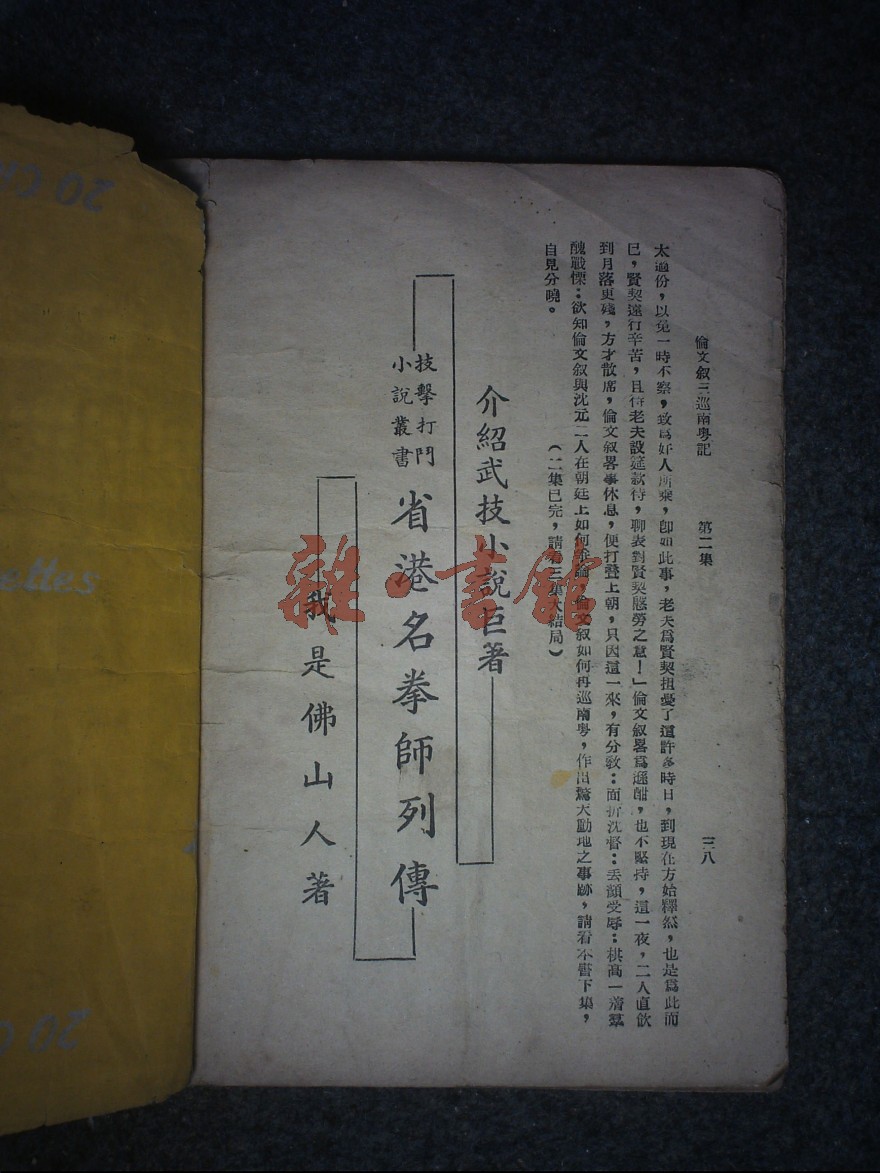 倫文叙三巡南粤記 第二集 三八
太過份，以免一時不察，致爲奸人所乘，卽如此事，老夫爲賢契担憂了這許多時日，到現在方始釋然，也是爲此而
已，賢契遠行辛苦，且待老夫設筵款待，聊表對賢契慰勞之意！」倫文叙畧爲遜酣，也不堅持，這一夜，二人直飲
到月落更殘，方才散席，倫文叙畧事休息，便打叠上朝，只因這一來，有分敎：面折沈督：丟顏受辱：棋高一着羣
醜戰慄：欲知倫文叙與沈元二人在朝廷上如何 論，倫文叙如何再巡南粤，作出驚天動地之事跡，請看本書下集，
自見分曉。
（二集已完，請看三集大結局）
介紹武技小說巨著
技擊打鬥
小說叢書
省港名拳師列傳
我是佛山人著
雜·書館
20 C
ettes
20 C